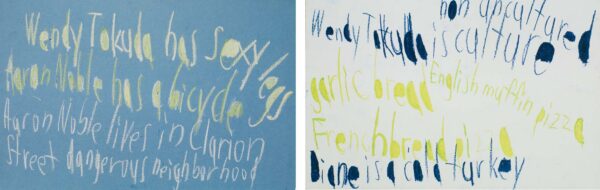 Wendy Tokuda has sexy legs
Aaron Noble has a bicycle
Aaron Noble lives in Clarion
Street dangerous neighborhood
non uncultured
Wendy Tokuda is cultured
garlic bread English muffin pizza
French bread pizza
Diane is a cold turkey